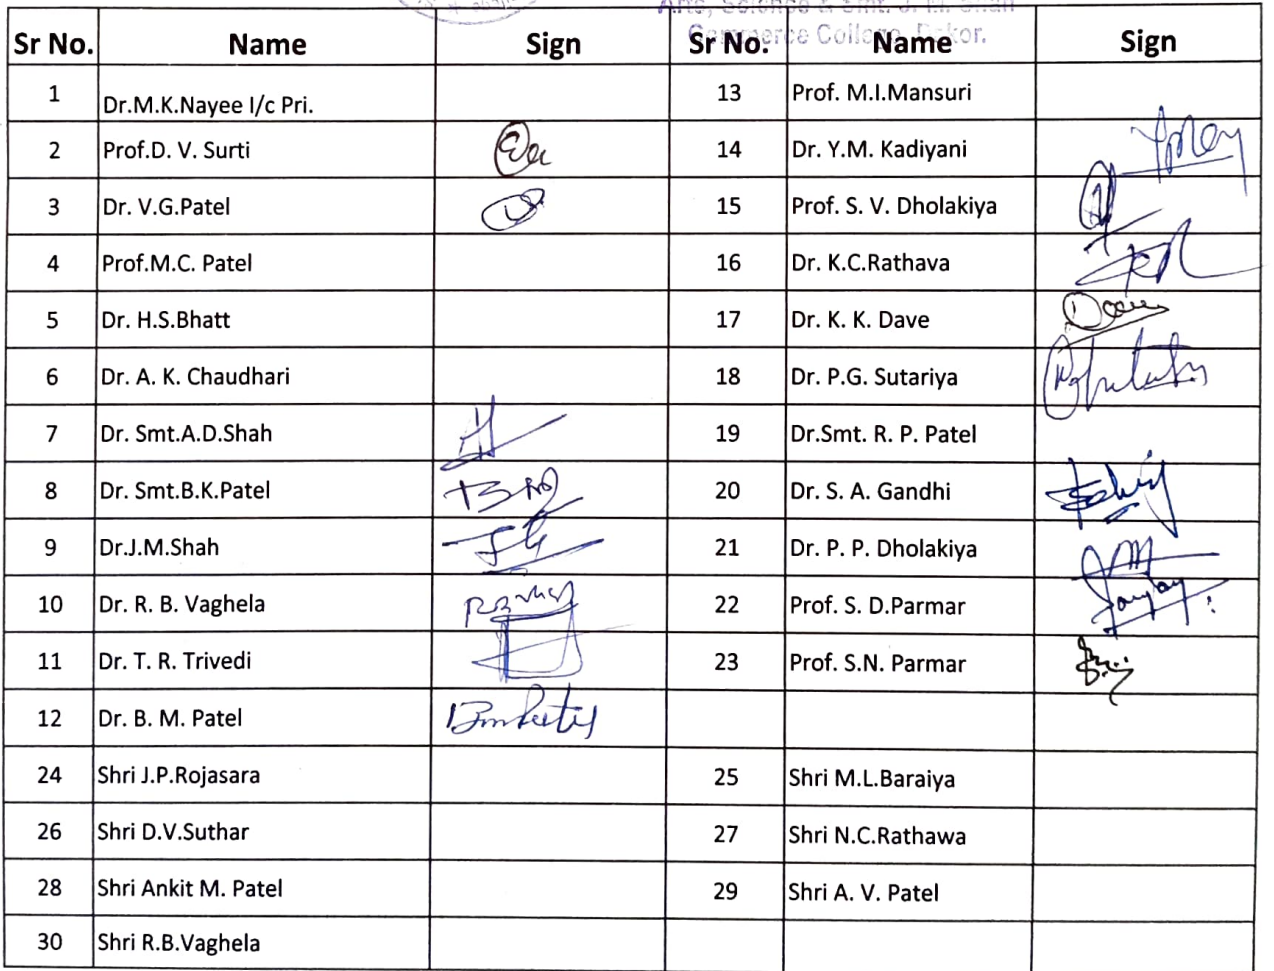 Arts, Science & Smt. J. M. Shah
Commerce College, Dakor.
Sr No. Name Sign Sr No. Name Sign
1 Dr.M.K.Nayee I/c Pri. 13 Prof. M.I.Mansuri
2 Prof.D. V. Surti 14 Dr. Y.M. Kadiyani
3 Dr. V.G.Patel 15 Prof. S. V. Dholakiya
4 Prof.M.C. Patel 16 Dr. K.C.Rathava
5 Dr. H.S.Bhatt 17 Dr. K. K. Dave
6 Dr. A. K. Chaudhari 18 Dr. P.G. Sutariya
7 Dr. Smt.A.D.Shah 19 Dr.Smt. R. P. Patel
8 Dr. Smt.B.K.Patel 20 Dr. S. A. Gandhi
9 Dr.J.M.Shah 21 Dr. P. P. Dholakiya
10 Dr. R. B. Vaghela 22 Prof. S. D.Parmar
11 Dr. T. R. Trivedi 23 Prof. S.N. Parmar
12 Dr. B. M. Patel
24 Shri J.P.Rojasara 25 Shri M.L.Baraiya
26 Shri D.V.Suthar 27 Shri N.C.Rathawa
28 Shri Ankit M. Patel 29 Shri A. V. Patel
30 Shri R.B.Vaghela